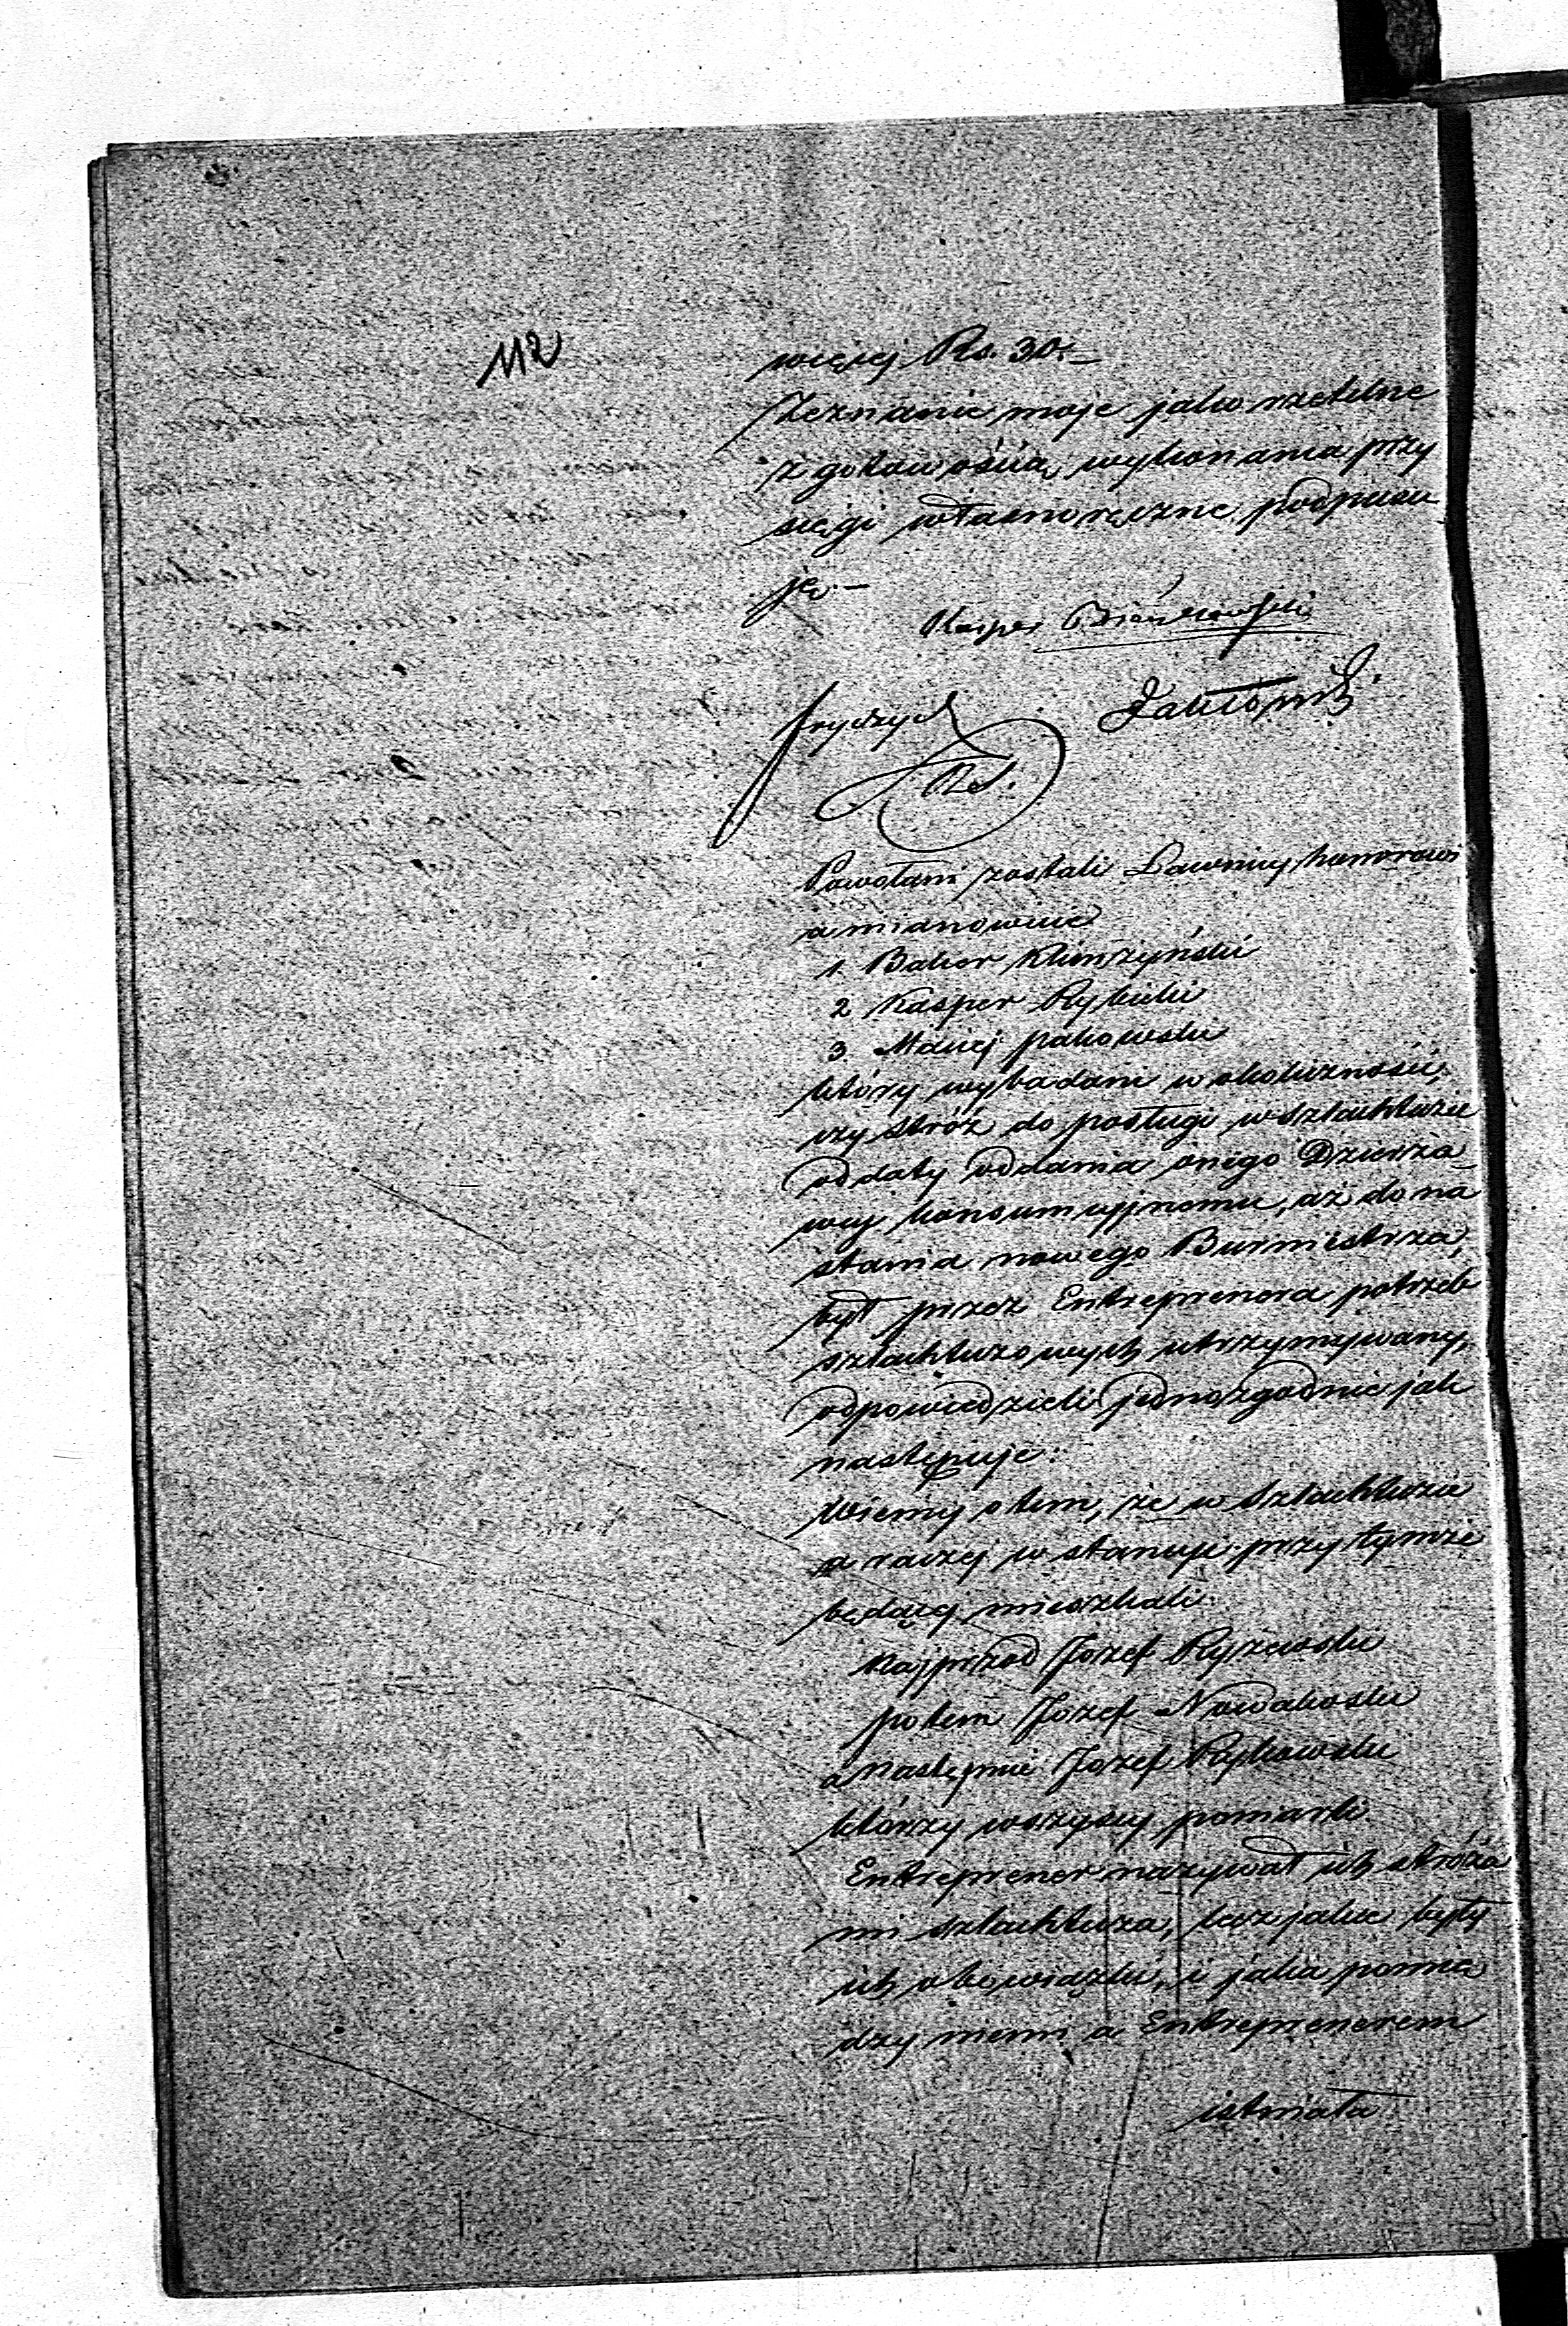 112
więcej Rs. 30.—
Zeznanie moje jako rzetelne
z gotowością wykonania przy
sięgi własnoręcznie podpisu
ję.—
Kasper
Powołani zostali Ławnicy honorowi
a mianowicie
1. Balcer Klimczyński
2 Kasper Rybicki
3 Maciej Jakowski
którzy wybadani w okoliczności,
czy stróż do posługi w szlachtuzie
od daty oddania onego Dzierża-
wcy konsumcyjnemu, aż do na
stania nowego Burmistrza,
był przez Entreprenera potrzeb
szlachtuzowych utrzymywany,
odpowiedzieli jednozgodnie jak
następuje:
Wiemy o tem, że w szlachtuzie
a raczej w stancji przy tymże
będącej mieszkali
Najprzód Józef Ryszewski
potem Józef Nowakoski
a następnie Józef Rykowski
którzy wszyscy pomarli.
Entreprener nazywał ich stróża
mi szlachtuza, lecz jakie były
ich obowiązki, i jaka pomię
dzy niemi a Entreprenerem
istniała